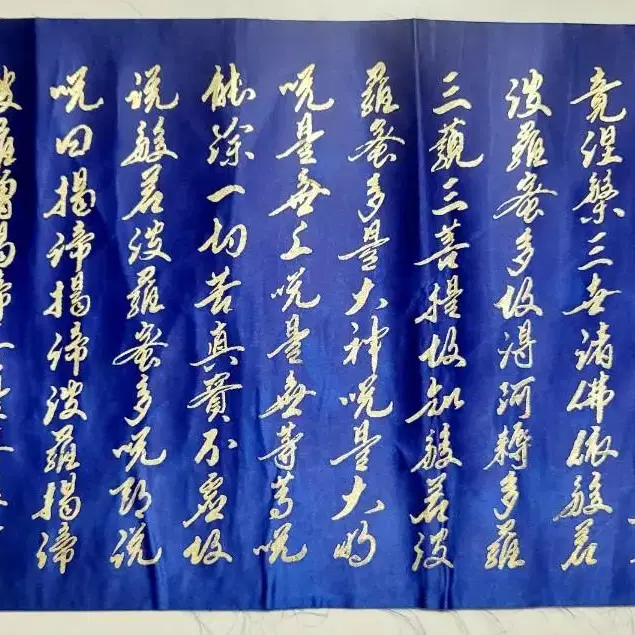 竟涅槃三世諸佛依般若
波羅蜜多故得阿耨多羅
三藐三菩提故知般若波
羅蜜多是大神咒是大明
咒是無上咒是無等等咒
能除一切苦真實不虛故
說般若波羅蜜多咒即說
咒曰揭諦揭諦波羅揭諦
波羅僧揭諦